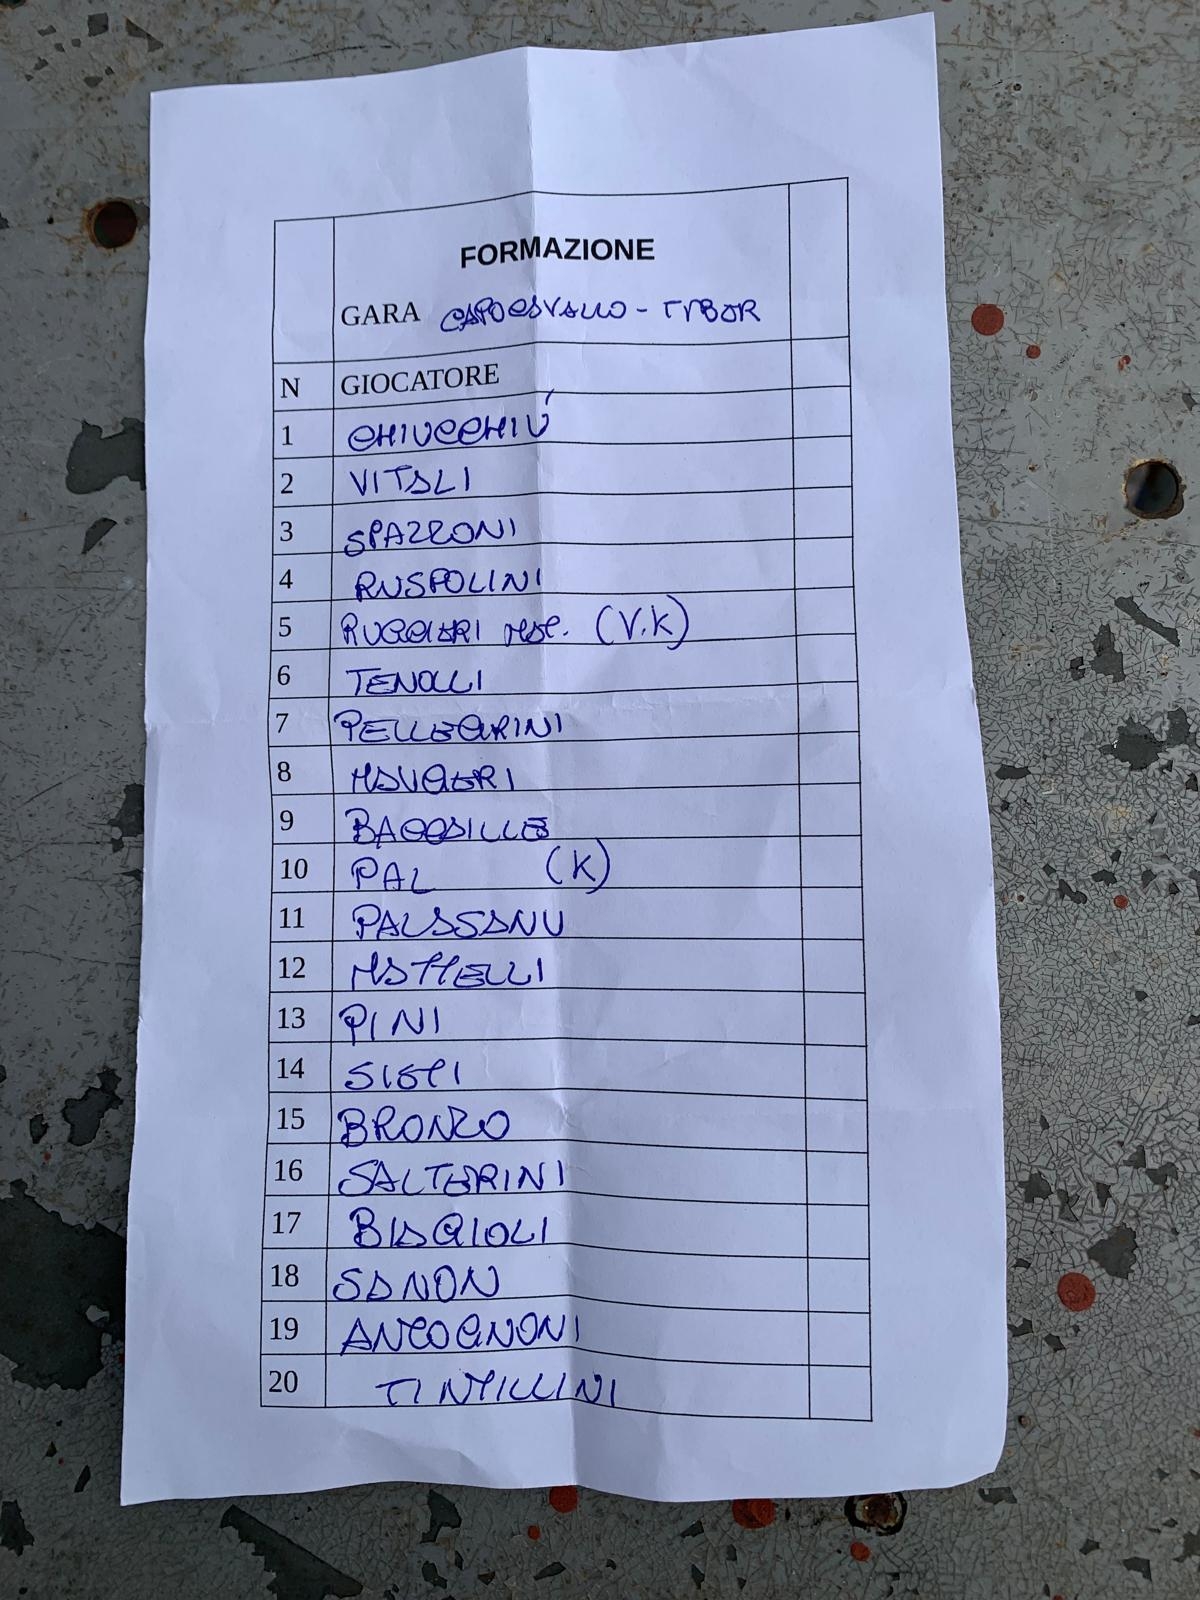 FORMAZIONE
GARA CAPOCAVALLO - TIBER
N GIOCATORE
1 CHIUCCHIÚ
2 VITALI
3 SPAZZONI
4 RUSPOLINI
5 RUGGIERI (V.K)
6 TENOLLI
7 PELLEGRINI
8 MAUGERI
9 BACCAILLE
10 PAL (K)
11 PALASSANU
12 MATTIELLI
13 PINI
14 SIEPI
15 BRONZO
16 SALTERINI
17 BIAGIOLI
18 SANON
19 ANTOGNONI
20 TINTILLINI